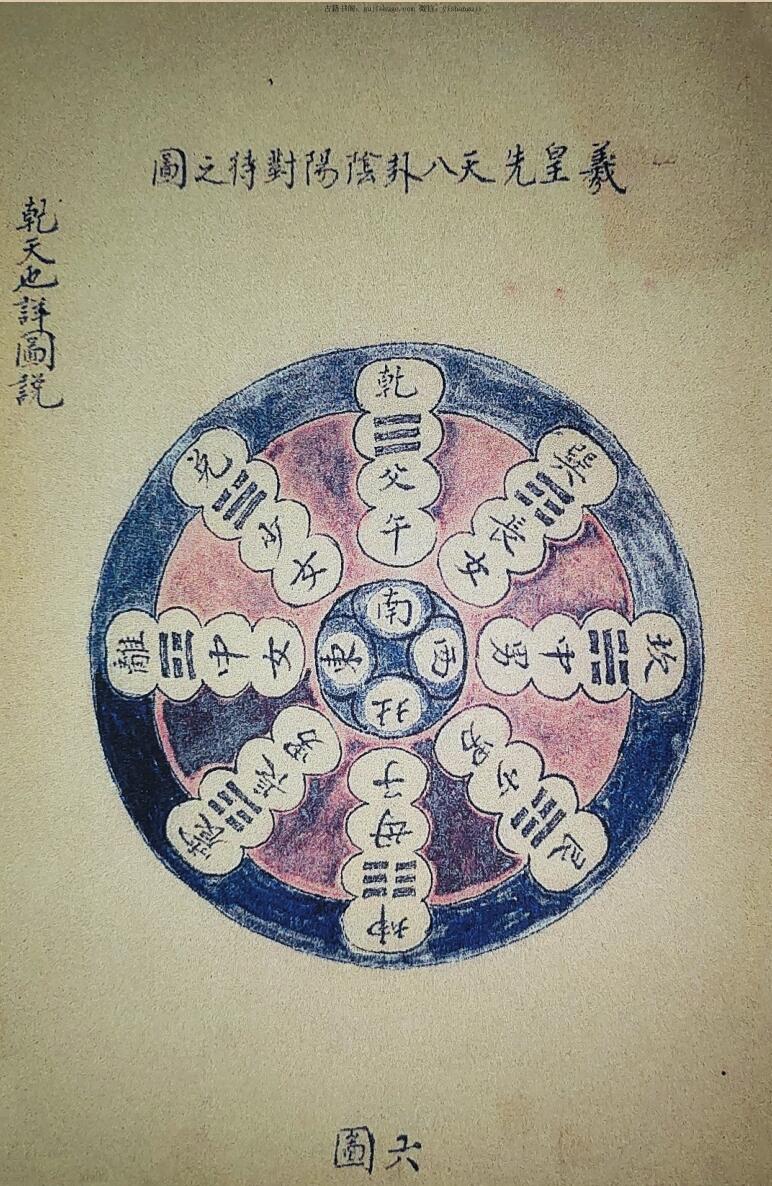 古籍书阁：gujishuge.com 微信：yishanguji
羲皇先天八卦陰陽對待之圖
乾天也詳圖説
乾父午
巽長女
坎中男
艮少男
坤母子
震
男
離中女
兌少女
南
西
北
東
六圖